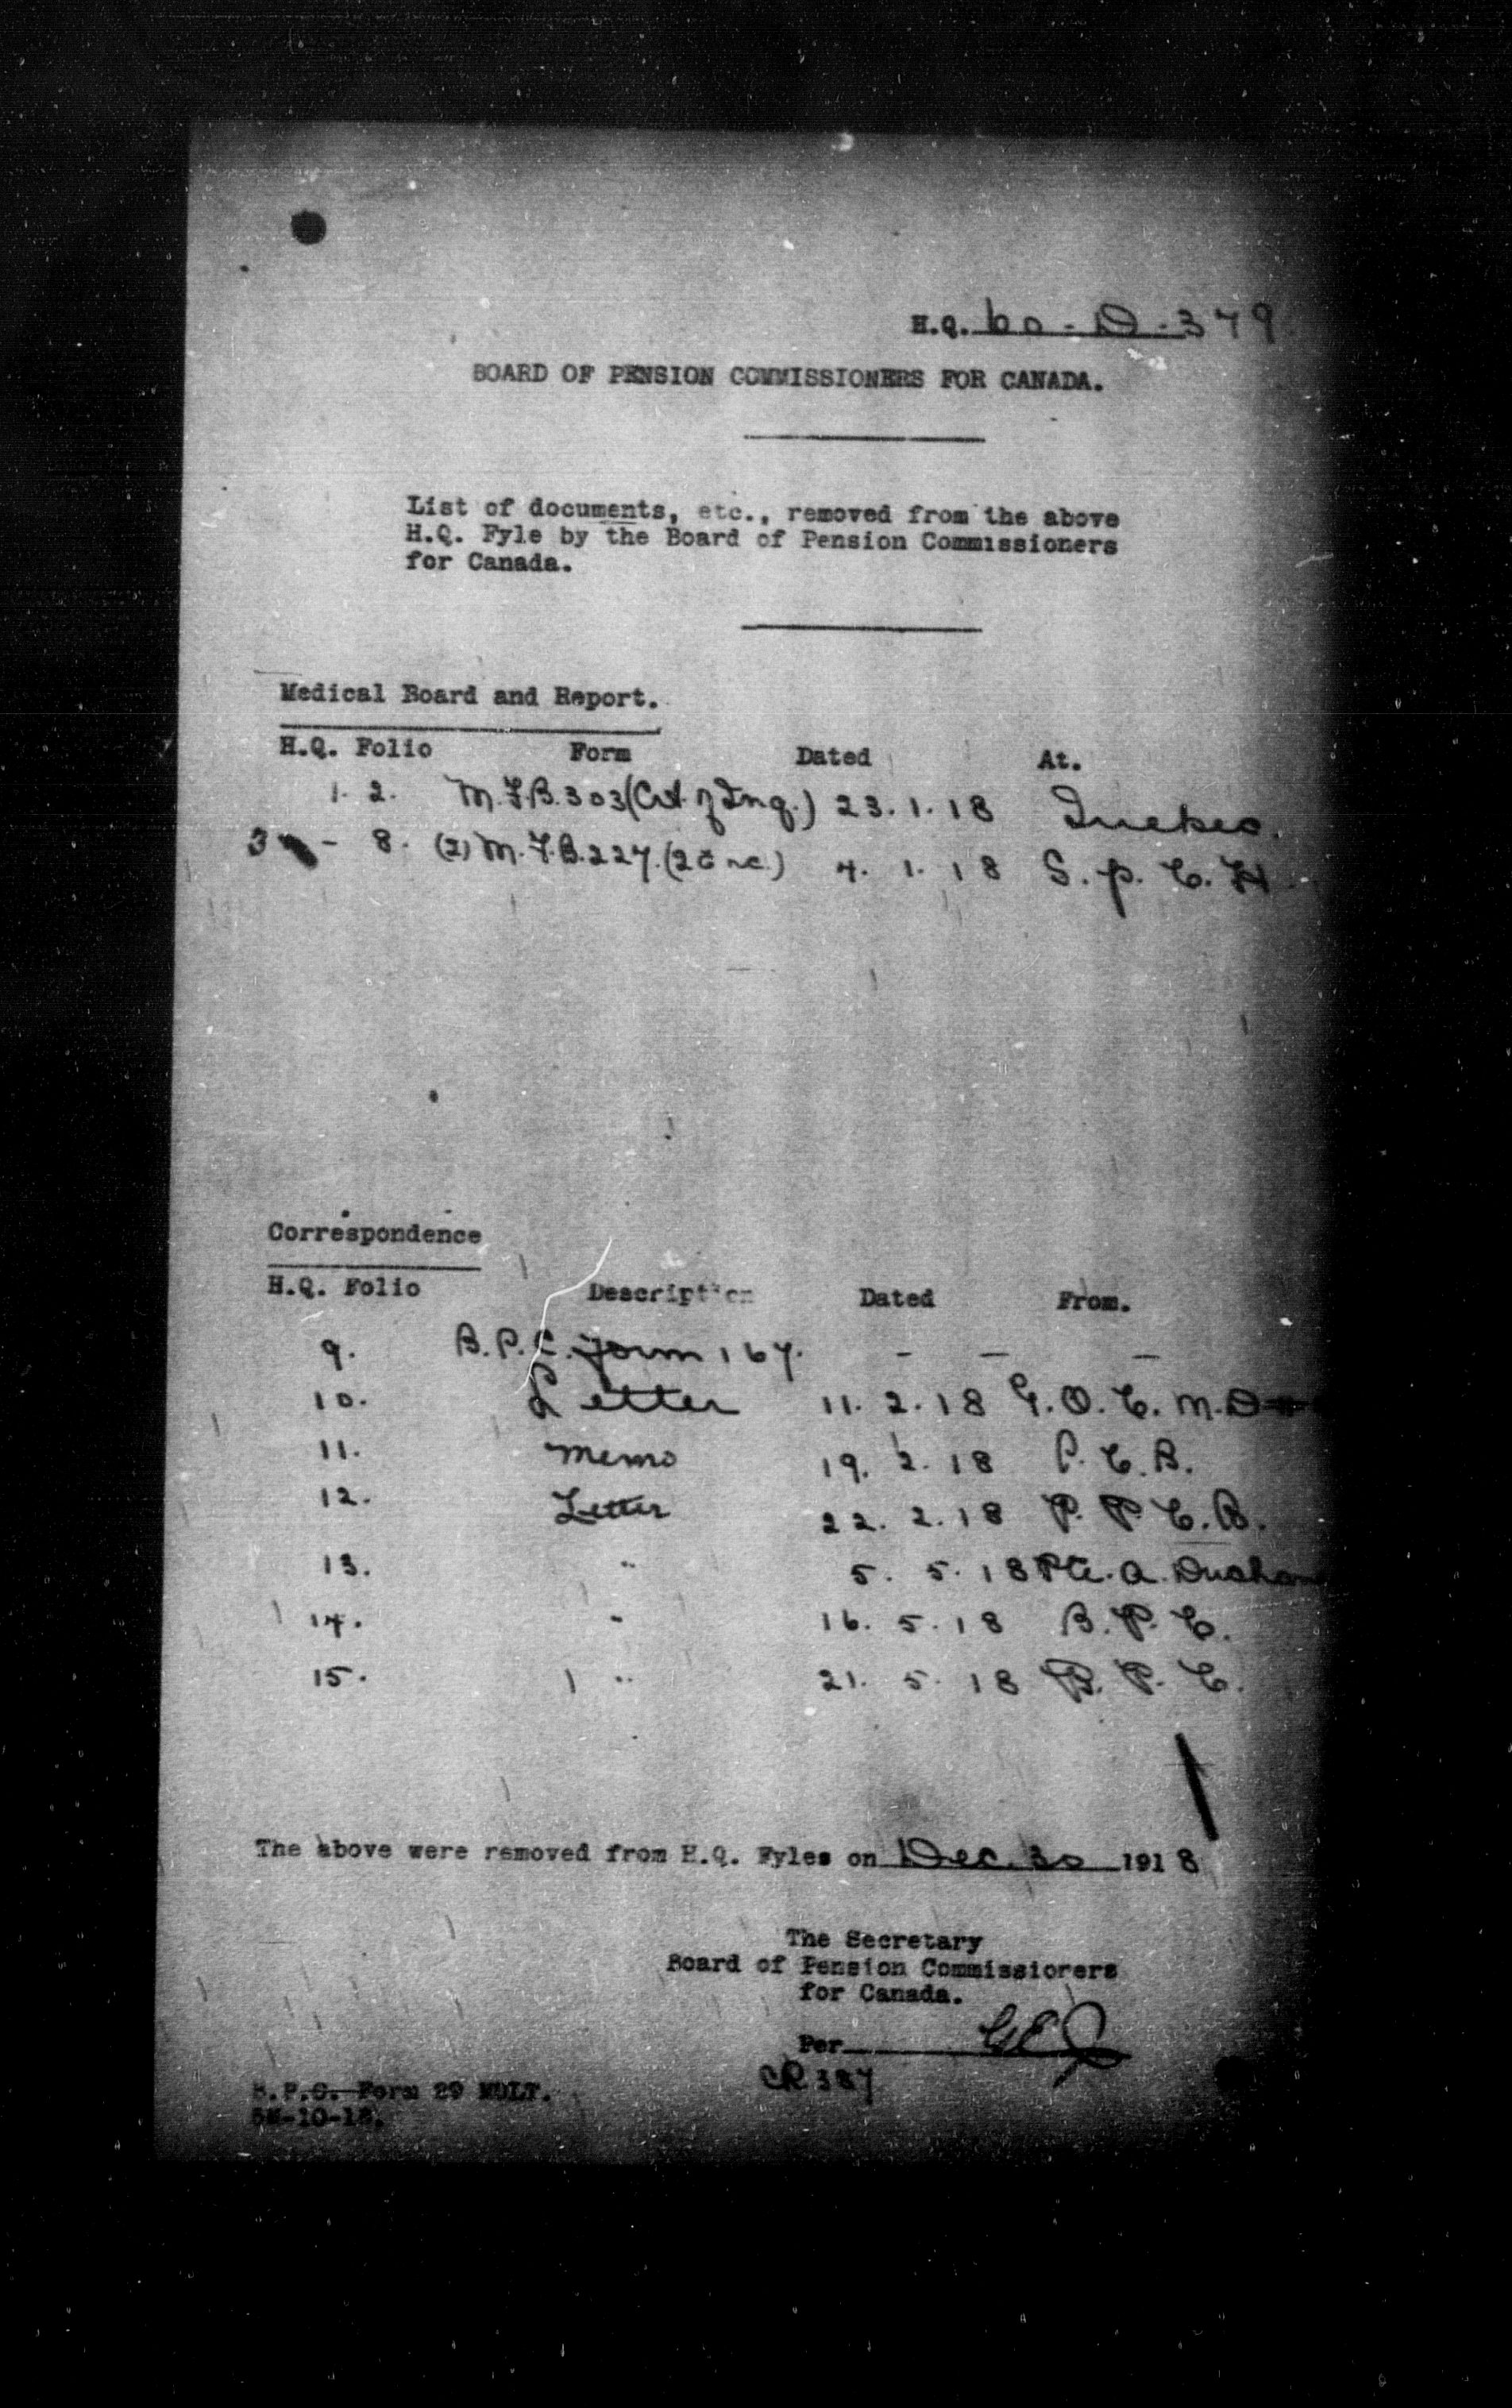 H.Q. 60-D-379
BOARD OF PENSION COMMISSIONERS FOR CANADA.
List of documents, etc., removed from the above
H.Q. Fyle by the Board of Pension Commissioners
for Canada.
Medical Board and Report.
H.Q. Folio Form Dated At.
1. 2. M.F.B. 303 (Crt. of Inq.) 23.1.18 Quebec.
3 - 8. (2) M.F.B. 227. 4. 1. 18 S. P. C. H.
Correspondence
H.Q. Folio Description Dated From.
9. B.P.C. Form 167. - - -
10. Letter 11. 2. 18 G. O. C. M.D.
11. Memo 19. 2. 18 P. C. B.
12. Letter 22. 2. 18 P. P. C. B.
13. " 5. 5. 18 Pte. A.
14. " 16. 5. 18 B. P. C.
15. " 21. 5. 18 B. P. C.
The above were removed from H.Q. Fyles on Dec. 30 1918
The Secretary
Board of Pension Commissioners
for Canada.
Per
CR 387
B.P.C. Form 29 MULT.